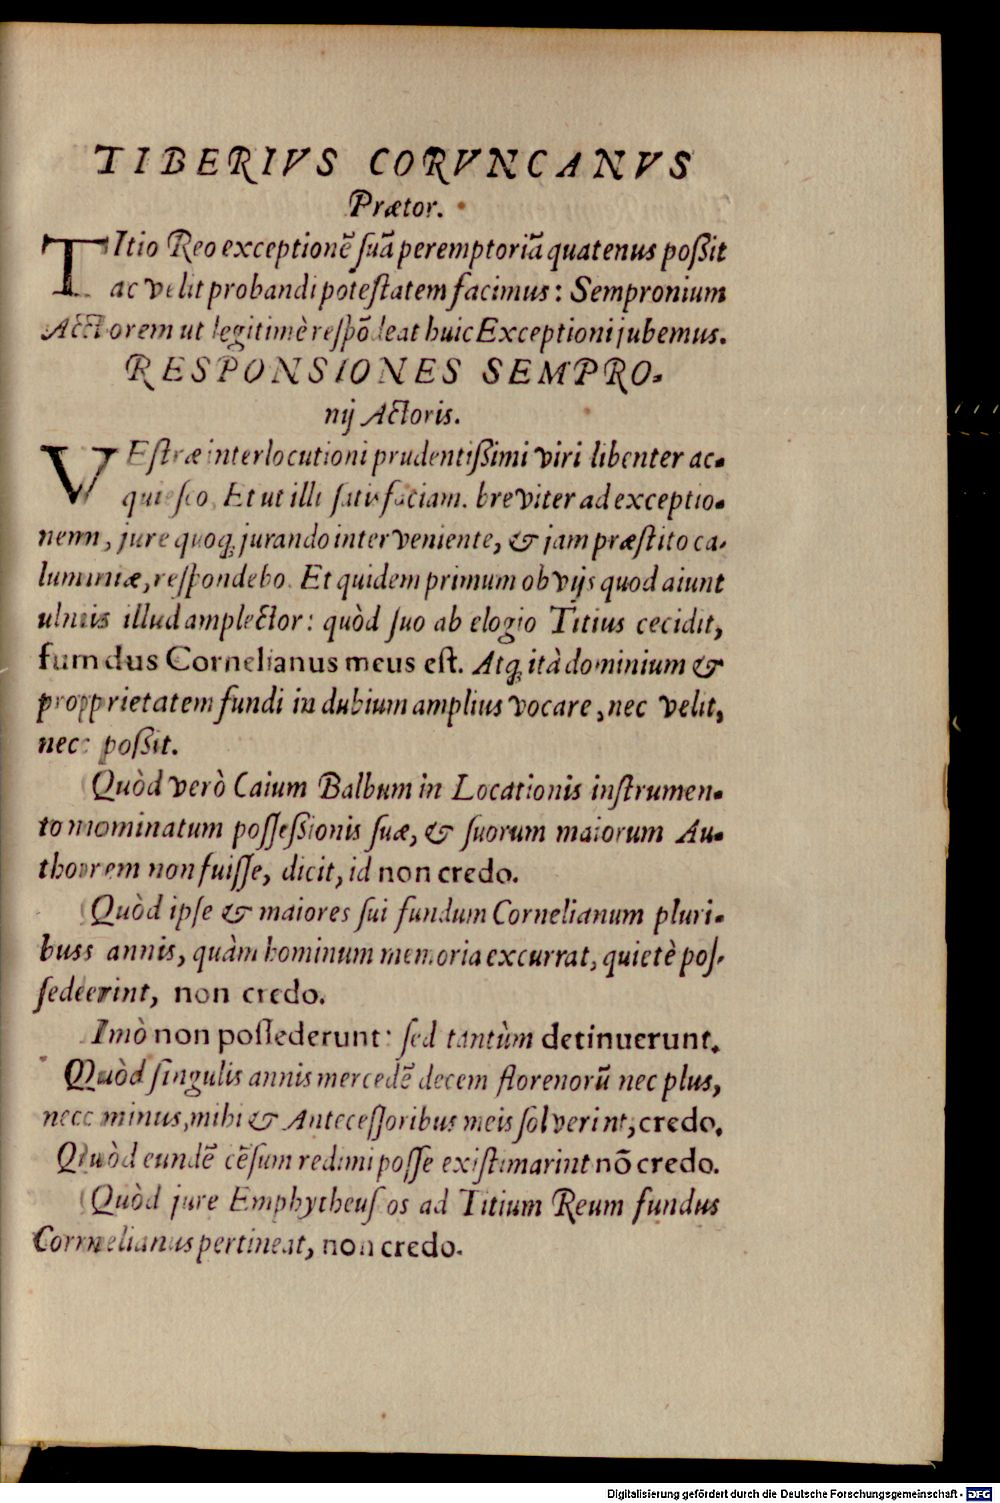 TIBERIVS CORVNCANVS
Prætor.
TItio Reo exceptionẽ ſuã peremptoriã quatenus poßit
ac velit probandi poteſtatem facimus: Sempronium
Actorem ut legitimè reſpõdeat huic Exceptioni jubemus.
RESPONSIONES SEMPRO-
nij Actoris.
VEſtræ interlocutioni prudentißimi viri libenter ac-
quieſco. Et ut illi ſatisfaciam. breviter ad exceptio-
nem, jure quoq; jurando interveniente, & jam præſtito ca-
lumniæ, reſpondebo. Et quidem primum obvijs quod aiunt
ulnis illud amplector: quòd ſuo ab elogio Titius cecidit,
fundus Cornelianus meus eſt. Atq; ità dominium &
proprietatem fundi in dubium amplius vocare, nec velit,
nec poßit.
Quòd verò Caium Balbum in Locationis inſtrumen-
to nominatum poſſeßionis ſuæ, & ſuorum maiorum Au-
thorem non fuiſſe, dicit, id non credo.
Quòd ipſe & maiores ſui fundum Cornelianum pluri-
bus annis, quàm hominum memoria excurrat, quietè poſ-
ſederint, non credo.
Imò non poſſederunt: ſed tantùm detinuerunt.
Quòd ſingulis annis mercedẽ decem florenorũ nec plus,
nec minus, mihi & Anteceſſoribus meis ſolverint, credo.
Quòd eundẽ cẽſum redimi poſſe exiſtimarint nõ credo.
Quòd jure Emphytheuſeos ad Titium Reum fundus
Cornelianus pertineat, non credo.
Digitalisierung gefördert durch die Deutsche Forschungsgemeinschaft - DFG